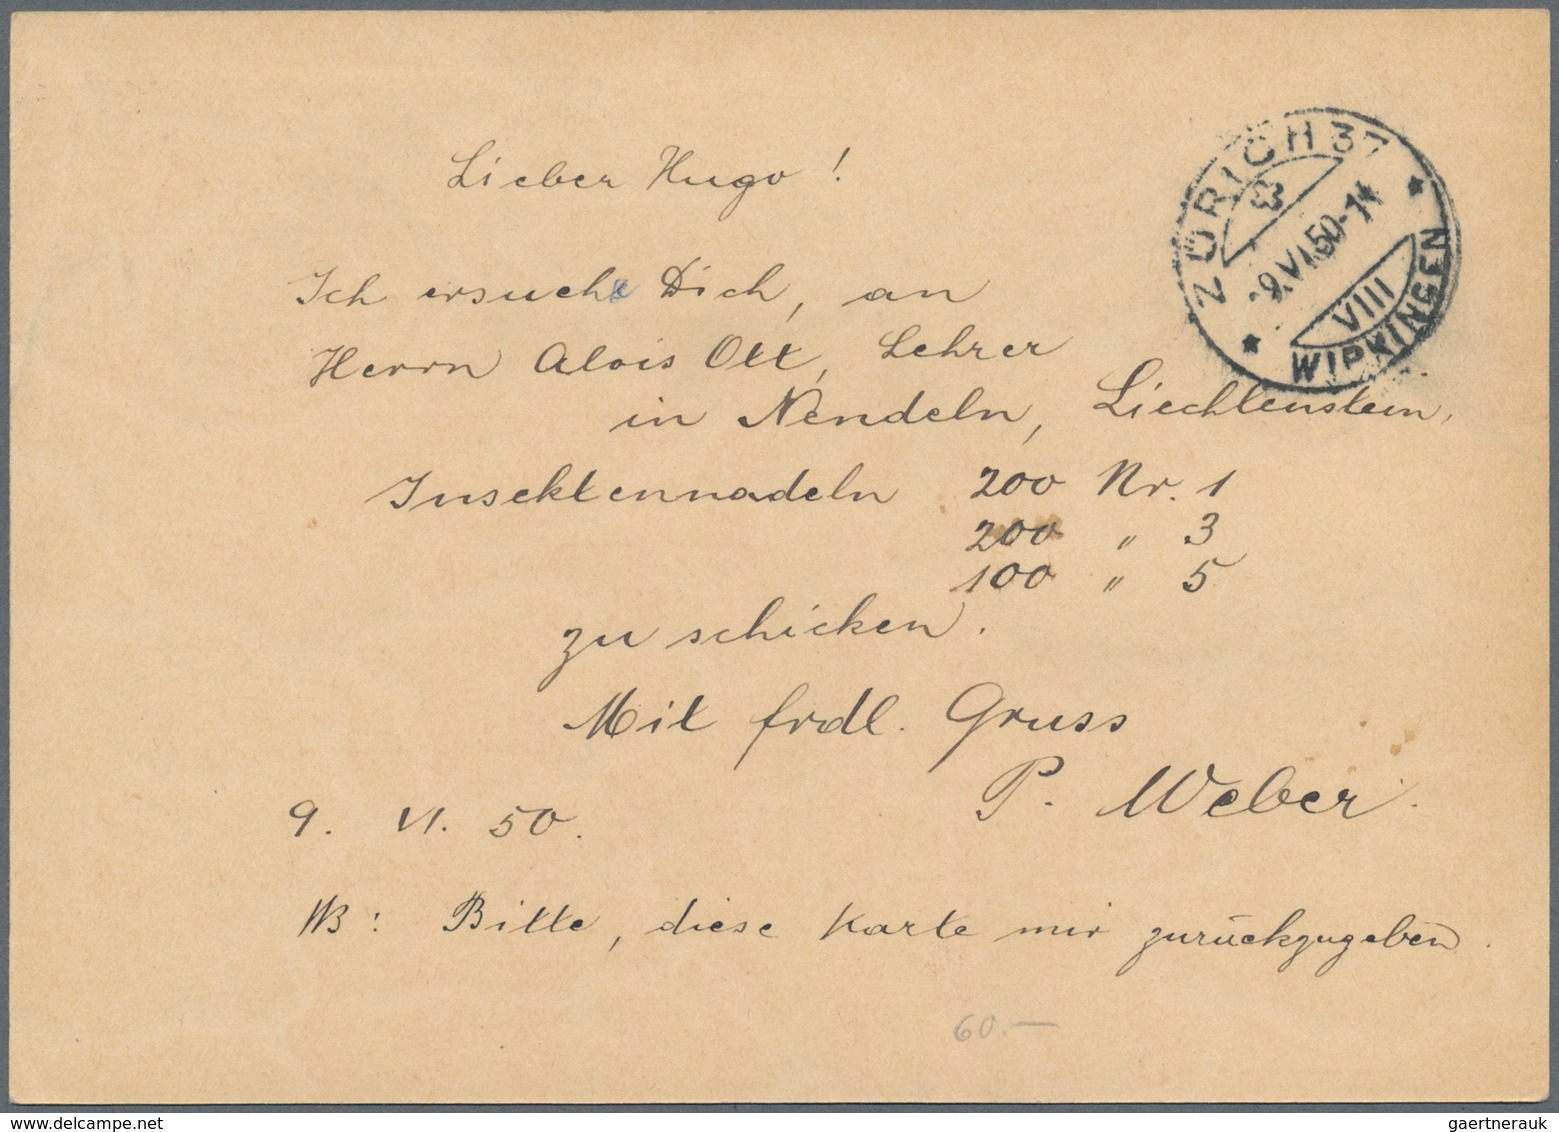 Lieber Hugo!
ZÜRICH 37
-9.VI.50-14
VIII
WIPKINGEN
Ich ersuche Dich, an
Herrn Alois Ott, Lehrer
in Nendeln, Liechtenstein,
Insektennadeln 200 Nr. 1
200 " 3
100 " 5
zu schicken.
Mit frdl. Gruss
P. Weber.
9. VI. 50.
NB: Bitte, diese Karte mir zurückzugeben.
60.—
www.delcampe.net
gaertnerauk